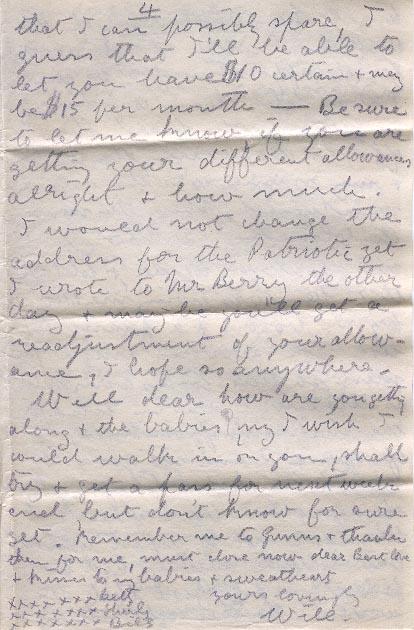 4
that I can possibly spare, I
guess that I'll be able to
let you have $10 certain + may
be $15 per month — Be sure
to let me know if you are
getting your different allowances
alright + how much.
I would not change the
address for the Patriotic yet
I wrote to Mr Berry the other
day + may be you'll get a
readjustment of your allow-
ance, I hope so anywhere.
Well dear how are you getting
along + the babies, my I wish I
could walk in on you, shall
try + get a pass for next week
end, but don't know for sure
yet. Remember me to Gunns + thank
them for me, must close now dear Best love
+ kisses to my babies + sweetheart
xxxx xxx Kelt yours lovingly
xxxxxxxx Shirly Will.
xxxxxxx